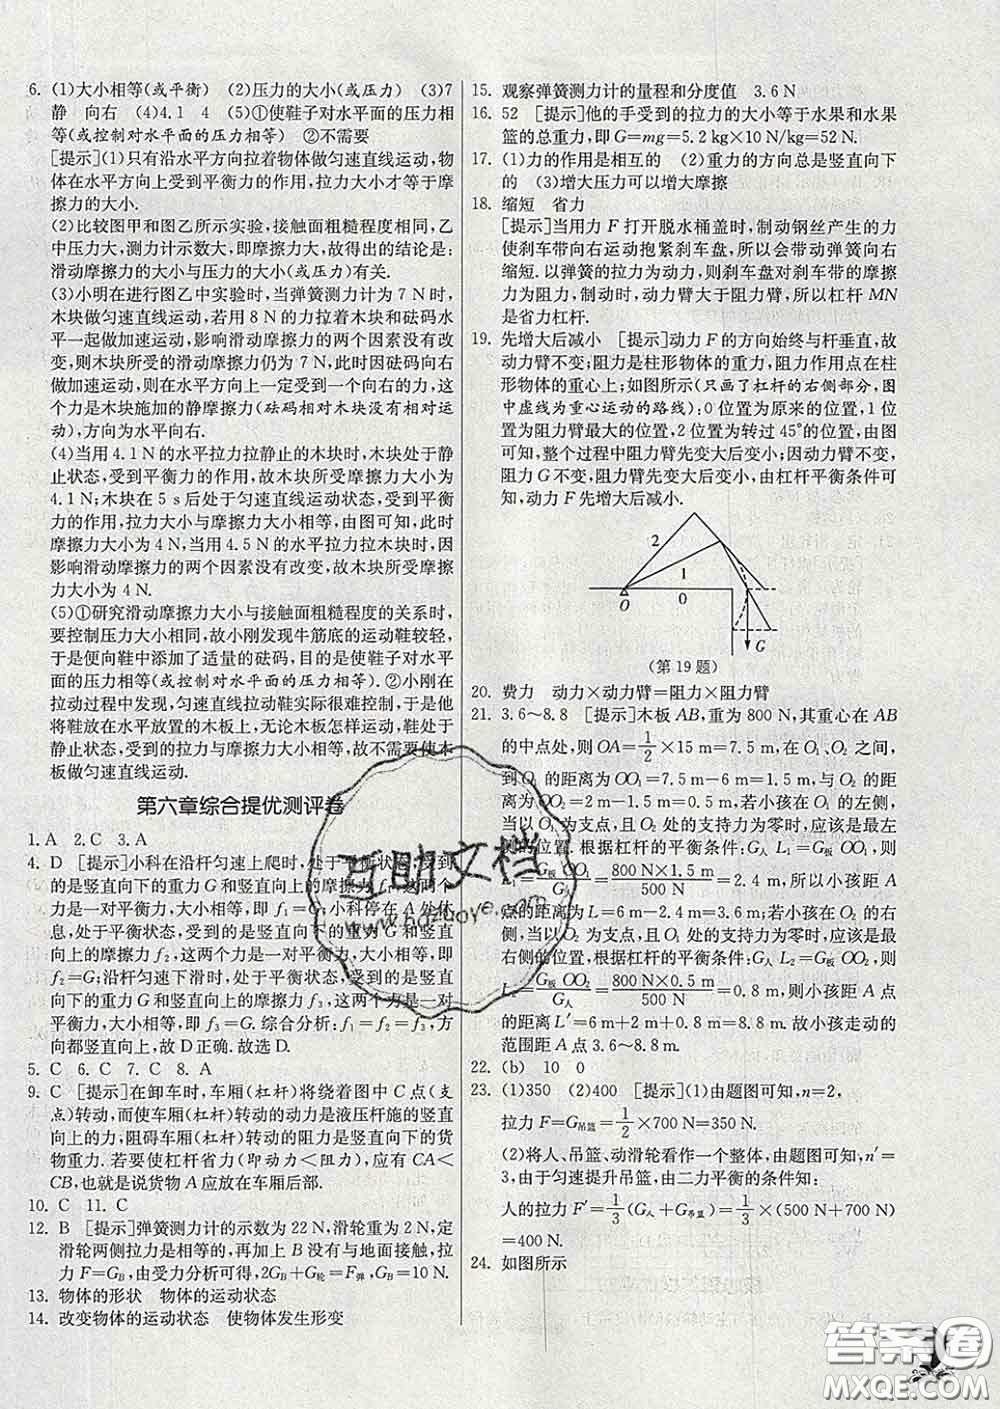 6. (1)大小相等(或平衡)　(2)压力的大小(或压力)　(3)7
静　向右　(4)4.1　4　(5)①使鞋子对水平面的压力相
等(或控制对水平面的压力相等)　②不需要
[提示](1)只有沿水平方向拉着物体做匀速直线运动,物
体在水平方向上受到平衡力的作用,拉力大小才等于摩
擦力的大小.
(2)比较图甲和图乙所示实验,接触面粗糙程度相同,乙
中压力大,测力计示数大,即摩擦力大,故得出的结论是:
滑动摩擦力的大小与压力的大小(或压力)有关.
(3)小明在进行图乙中实验时,当弹簧测力计为 7 N 时,
木块做匀速直线运动,若用 8 N 的力拉着木块和砝码水
平向右做加速运动,影响滑动摩擦力的两个因素没有改
变,则木块所受的滑动摩擦力仍为 7 N,此时因砝码向右
做加速运动,则在水平方向上一定受到一个向右的力,这
个力是木块施加的静摩擦力(砝码相对木块没有相对运
动),方向为水平向右.
(4)当用 4.1 N 的水平拉力拉静止的木块时,木块处于静
止状态,受到平衡力的作用,故木块所受摩擦力大小为
4.1 N;木块在 5 s 后处于匀速直线运动状态,受到平衡
力的作用,拉力大小与摩擦力大小相等,由图可知,此时
摩擦力大小为 4 N,当用 4.5 N 的水平拉力拉木块时,因
影响滑动摩擦力的两个因素没有改变,故木块所受摩擦
力大小为 4 N.
(5)①研究滑动摩擦力大小与接触面粗糙程度的关系时,
要控制压力大小相同,故小刚发现牛筋底的运动鞋较轻,
于是便向鞋中添加了适量的砝码,目的是使鞋子对水平
面的压力相等(或控制对水平面的压力相等).②小刚在
拉动过程中发现,匀速直线拉动鞋实际很难控制,于是他
将鞋放在水平放置的木板上,无论木板怎样运动,鞋处于
静止状态,受到的拉力与摩擦力总相等,故不需要使木
板做匀速直线运动.
第六章综合提优测评卷
1. A　2. C　3. A
4. D　[提示]小科在沿杆匀速上爬时,处于平衡状态,受到
的是竖直向下的重力 G 和竖直向上的摩擦力 f₁,这两个
力是一对平衡力,大小相等,即 f₁=G;小科停在 A 处休
息,处于平衡状态,受到的是竖直向下的重力 G 和竖直
向上的摩擦力 f₂,这两个力是一对平衡力,大小相等,即
f₂=G;沿杆匀速下滑时,处于平衡状态,受到的是竖直
向下的重力 G 和竖直向上的摩擦力 f₃,这两个力是一对
平衡力,大小相等,即 f₃=G. 综合分析:f₁=f₂=f₃,方
向都竖直向上,故 D 正确. 故选 D.
5. C　6. C　7. C　8. A
9. C　[提示]在卸车时,车厢(杠杆)将绕着图中 C 点(支
点)转动,而使车厢(杠杆)转动的动力是液压杆施的竖直
向上的力,阻碍车厢(杠杆)转动的阻力是竖直向下的货
物重力. 若要使杠杆省力(即动力<阻力),应有 CA<
CB,也就是说货物 A 应放在车厢后部.
10. C　11. C
12. B　[提示]弹簧测力计的示数为 22 N,滑轮重为 2 N,定
滑轮两侧拉力是相等的,再加上 B 没有与地面接触,拉
力 F=G_B,由受力分析可得,2G_B+G轮=F弹,G_B=10 N.
13. 物体的形状　物体的运动状态
14. 改变物体的运动状态　使物体发生形变
15. 观察弹簧测力计的量程和分度值　3.6 N
16. 52　[提示]他的手受到的拉力的大小等于水果和水果
篮的总重力,即 G=mg=5.2 kg×10 N/kg=52 N.
17. (1)力的作用是相互的　(2)重力的方向总是竖直向下
的　(3)增大压力可以增大摩擦
18. 缩短　省力
[提示]当用力 F 打开脱水桶盖时,制动钢丝产生的力
使刹车带向右运动抱紧刹车盘,所以会带动弹簧向右
缩短. 以弹簧的拉力为动力,则刹车盘对刹车带的摩擦
力为阻力,制动时,动力臂大于阻力臂,所以杠杆 MN
是省力杠杆.
19. 先增大后减小　[提示]动力 F 的方向始终与杆垂直,故
动力臂不变;阻力是柱形物体的重力,阻力作用点在柱
形物体的重心上;如图所示(只画了杠杆的右侧部分,图
中虚线为重心运动的路线):0 位置为原来的位置,1 位
置为阻力臂最大的位置,2 位置为转过 45°的位置,由图
可知,整个过程中阻力臂先变大后变小;因动力臂不变,
阻力 G 不变,阻力臂先变大后变小,由杠杆平衡条件可
知,动力 F 先增大后减小.
2
1
O
0
G
(第 19 题)
20. 费力　动力×动力臂=阻力×阻力臂
21. 3.6~8.8　[提示]木板 AB,重为 800 N,其重心在 AB
的中点处,则 OA=1/2×15 m=7.5 m,在 O₁、O₂ 之间,
到 O₁ 的距离为 OO₁=7.5 m-6 m=1.5 m,与 O₂ 的距
离为 OO₂=2 m-1.5 m=0.5 m. 若小孩在 O₁ 的左侧,
当以 O₁ 为支点,且 O₂ 处的支持力为零时,应该是最左
侧的位置. 根据杠杆的平衡条件:G人 L₁=G板 OO₁,则
L₁=G板 OO₁/G人=800 N×1.5 m/500 N=2.4 m,所以小孩距 A
点的距离为 L=6 m-2.4 m=3.6 m;若小孩在 O₂ 的右
侧,当以 O₂ 为支点,且 O₁ 处的支持力为零时,应该是最
右侧的位置,根据杠杆的平衡条件:G人 L₂=G板 OO₂,则
L₂=G板 OO₂/G人=800 N×0.5 m/500 N=0.8 m,则小孩距 A 点
的距离 L′=6 m+2 m+0.8 m=8.8 m. 故小孩走动的
范围距 A 点 3.6~8.8 m.
22. (b)　10　0
23. (1)350　(2)400　[提示](1)由题图可知,n=2,
拉力 F=G吊篮=1/2×700 N=350 N.
(2)将人、吊篮、动滑轮看作一个整体,由题图可知,n′=
3,由于匀速提升吊篮,由二力平衡的条件知:
人的拉力 F′=1/3(G人+G吊篮)=1/3×(500 N+700 N)
=400 N.
24. 如图所示
互助文档
www.hdzuoye.com
答案圈
MXQE.COM